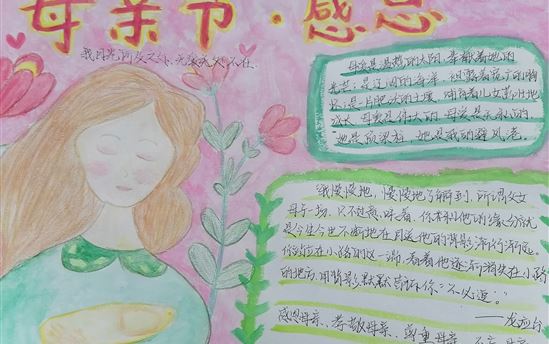 母亲节·感恩
母亲是温热的太阳,奉献着她的
光芒;是辽阔的海洋,袒露着宽广的胸
怀;是片肥沃的土壤,哺育着儿女茁壮地
成长。母亲是伟大的,母亲是永远的
她是顶梁柱,她是我的避风港。
我慢慢地,慢慢地了解到,所谓父女
母子一场,只不过意味着,你和他的缘分就
是今生今世不断地在目送他的背影渐行渐远。
你站在小路的这一端,看着他逐渐消失在小路
的地方,用背影默默告诉你"不必追"。
——龙应台
感恩母亲,孝敬母亲,尊重母亲